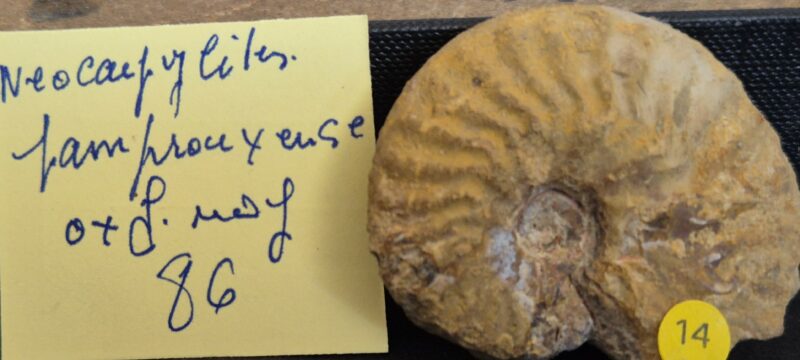 Neocampylites.
pamprouxense
oxf. moy
86
14